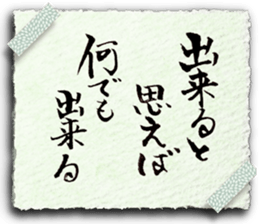 出来ると
思えば
何でも
出来る